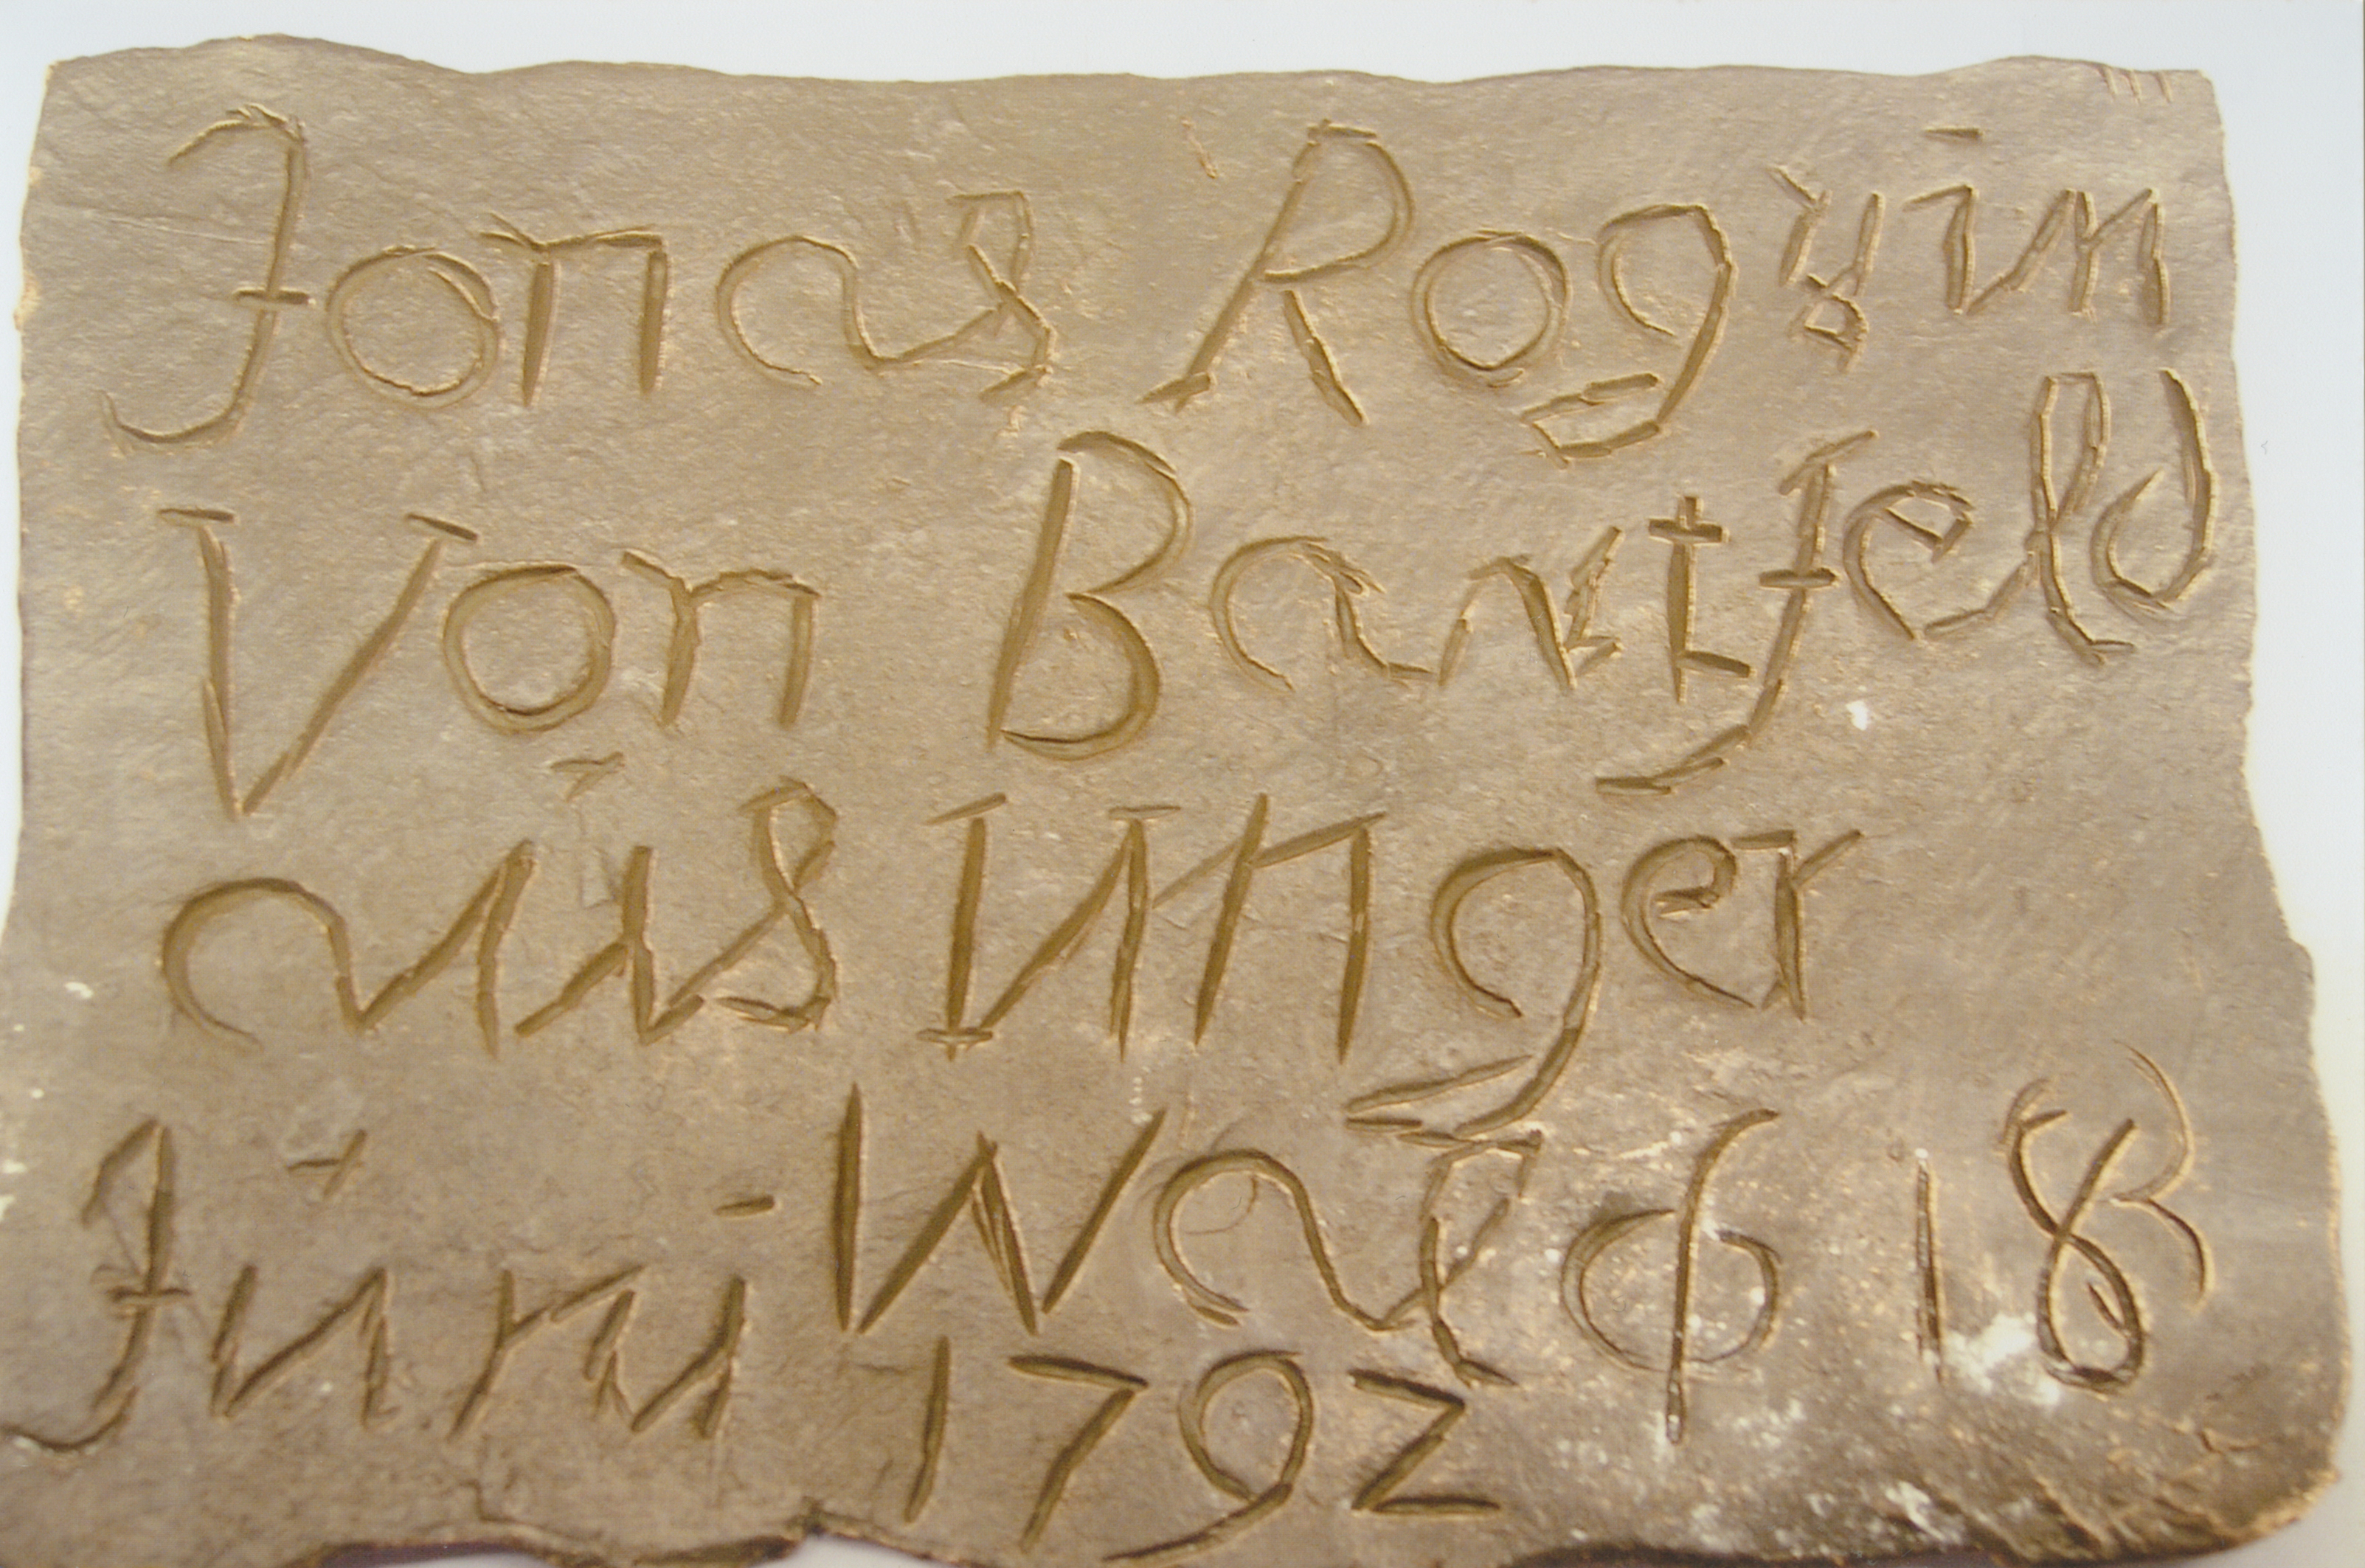 Jonas Rogÿin
Von Bartfeld
aus Unger
Jűni Wal φ 18
1792